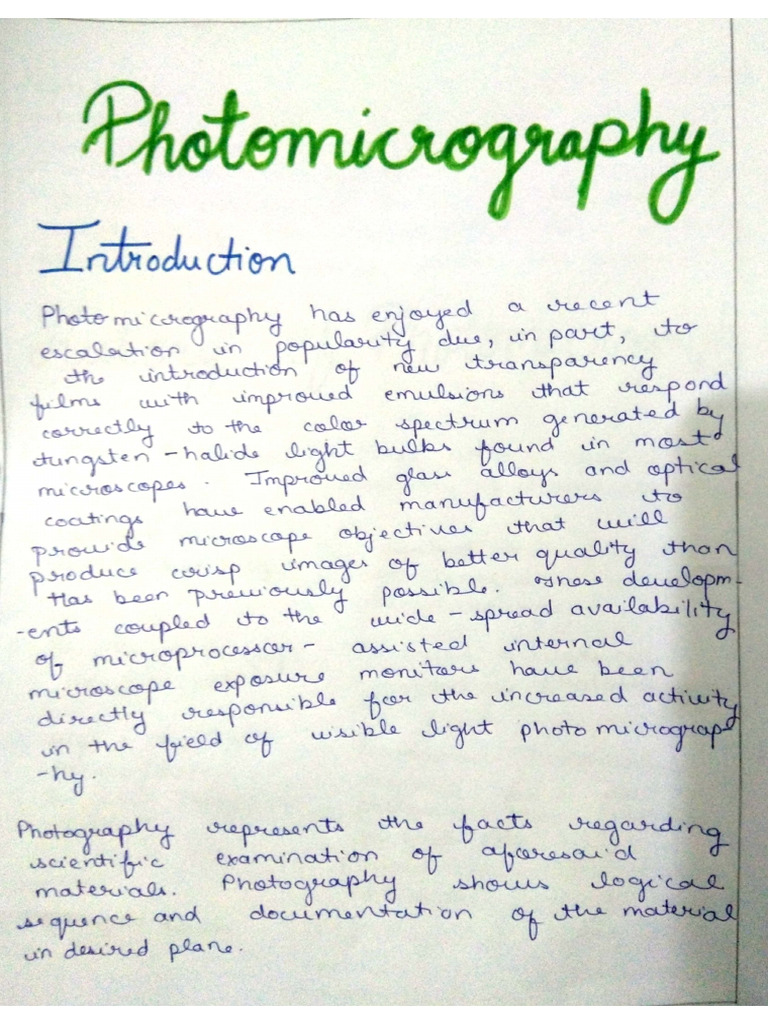 Photomicrography
Introduction
Photomicrography has enjoyed a recent
escalation in popularity due, in part, to
the introduction of new transparency
films with improved emulsions that respond
correctly to the color spectrum generated by
tungsten-halide light bulbs found in most
microscopes. Improved glass alloys and optical
coatings have enabled manufacturers to
provide microscope objectives that will
produce crisp images of better quality than
has been previously possible. These developm-
-ents coupled to the wide-spread availability
of microprocessor- assisted internal
microscope exposure monitors have been
directly responsible for the increased activity
in the field of visible light photomicrograp
-hy.
Photography represents the facts regarding
scientific examination of aforesaid
materials. Photography shows logical
sequence and documentation of the material
in desired plane.